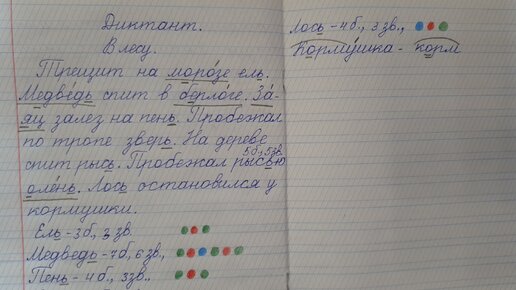 Диктант.
В лесу.
Трещит на моро́зе ель.
Медве́дь спит в берло́ге. За́-
яц залез на пень. Пробежал
по тропе зверь. На дереве
5б., 5зв
спит рысь. Пробежал рысью
оле́нь. Лось остановился у
кормушки.
Ель - 3б., 3 зв.
Медведь - 7б, 6 зв.,
Пень - 4б., 3зв..
Лось - 4б., 3 зв.,
Корму́шка - корм